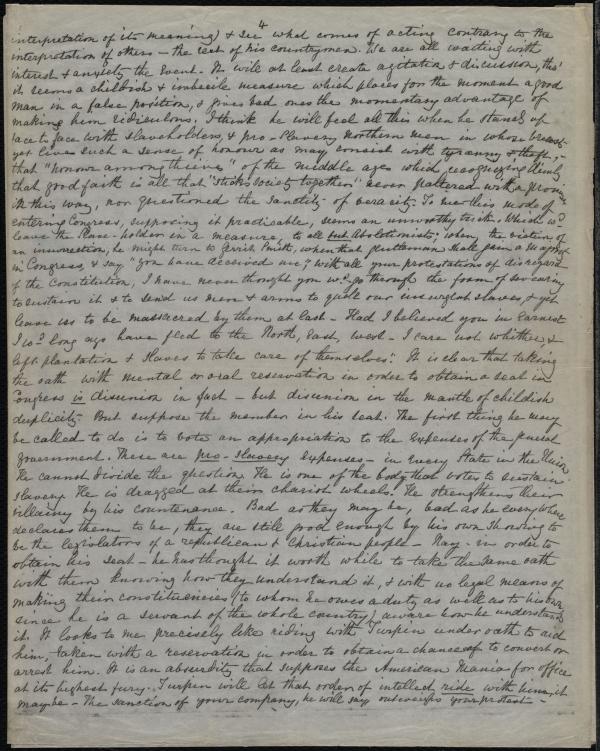 4
interpretation of its meaning) & see what comes of acting contrary to the
interpretation of others – the rest of his countrymen. We are all waiting with
interest & anxiety the event. It will at least create agitation & discussion, tho'
it seems a childish & imbecile measure which places for the moment a good
man in a false position, & gives bad ones the momentary advantage of
making him ridiculous. I think he will feel all this when he stands up
face to face with slaveholders, & pro-slavery northern men in whose breasts
yet lives such a sense of honour as may consist with tyranny & theft, –
that "honour among thieves" of the middle ages which recognizing
that good faith is all that "sticks society together" never paltered with a promise
in this way, nor questioned the sanctity of veracity. To me this mode of
entering Congress, supposing it practicable, seems an unworthy trick. Which wd
leave the slave-holder in a measure to all but Abolitionists; when, the victim of
an insurrection, he might turn to Gerrit Smith, when that gentleman shall gain a majority
in Congress, & say "you have deceived me; with all your protestations of disregard
of the Constitution, I have never thought you wd go through the form of swearing
to sustain it & to send us men & arms to quell our insurgent slaves, & yet
leave us to be massacred by them at last – Had I believed you in earnest
I wd long ago have fled to the North, East, West – I care not whither, &
left plantation & slaves to take care of themselves." It is clear that taking
the oath with mental or oral reservation in order to obtain a seat in
Congress is disunion in fact – but disunion in the mantle of childish
duplicity. But suppose the member in his seat. The first thing he may
be called to do is to vote an appropriation to the expenses of the general
government. There are pro-slavery expenses – in every State in the Union.
He cannot divide the question. He is one of the body that votes to sustain
slavery. He is dragged at their chariot wheels. He strengthens their
villainy by his countenance. Bad as they may be, bad as he everywhere
declares them to be, they are still good enough by his own showing to
be the legislators of a republican & Christian people – Nay – in order to
obtain his seat – he has thought it worth while to take the same oath
with them knowing how they understand it, & with no legal means of
making their constituencies (to whom he owes a duty as well as to his own
since he is a servant of the whole country) aware how he understands
it. It looks to me precisely like riding with Turpin under oath to aid
him, taken with a reservation in order to obtain a chance of to convert or
arrest him. It is an absurdity that supposes the American mania for office
at its highest fury. Turpin will let that order of intellect ride with him, it
may be – The sanction of your company, he will say outweighs your protest –